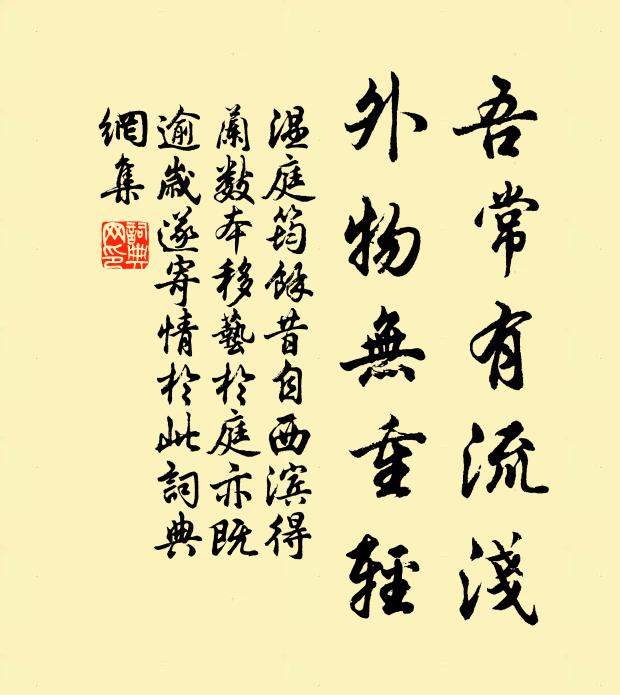 吾常有流淺
外物無重輕
温庭筠餘昔自西濱得
蘭數本移藝於庭亦既
逾歲遂寄情於此詞典
網集
詞典
网印